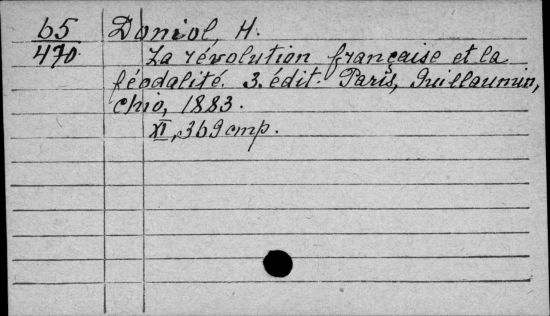 65 Doniol, H.
470. La révolution française et la
féodalité. 3. édit. Paris, Guillaumin,
chio, 1883.
XI, 369 cmp.